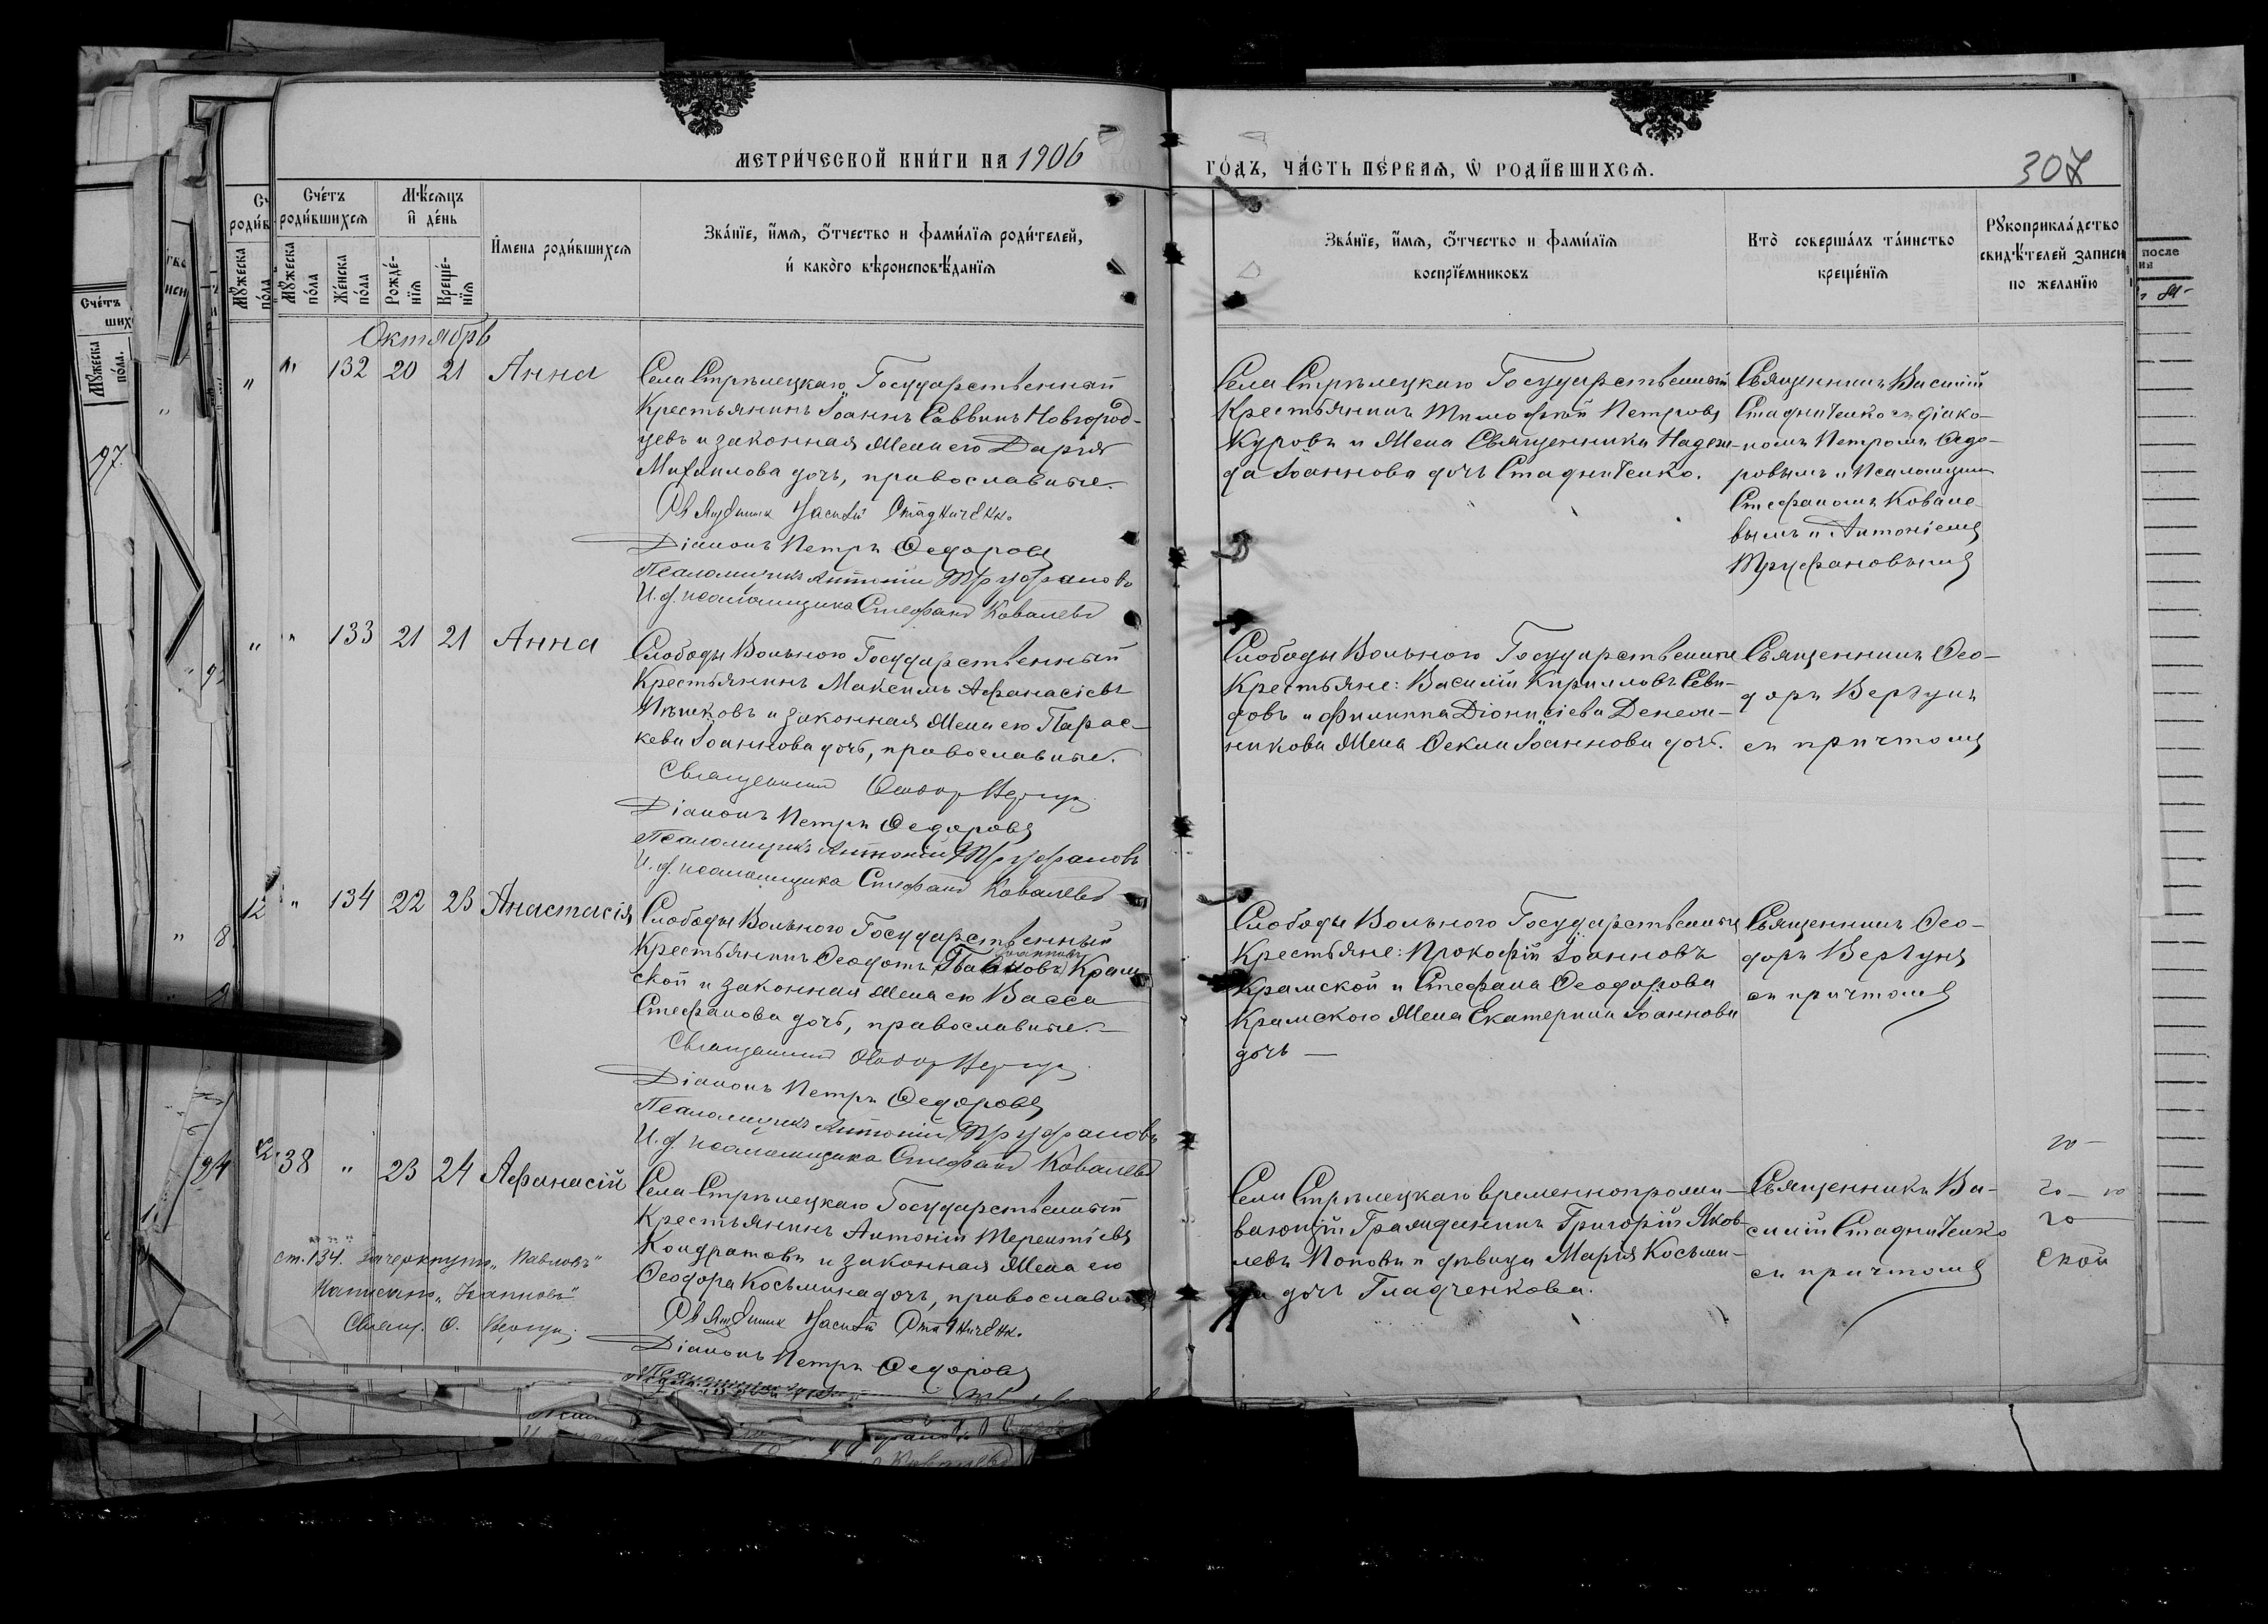 МЕТРИ́ЧЕСКОЙ КНИ́ГИ НА 1906
ГО́ДЪ, ЧА́СТЬ ПЕ́РВАЯ, Ѡ РОДИ́ВШИХСЯ.
307
Сче́тъ роди́вшихся
Мѣ́сяцъ и҆ де́нь
Мꙋ́жеска по́ла
Же́нска по́ла
Рожде́нїя
Креще́нїя
И҆мена роди́вшихся
Зва́нїе, и҆́мя, ѻ҆́тчество и фами́лїя роди́телей,
и҆ како́го вѣроисповѣ́данїя
Зва́нїе, и҆́мя, ѻ҆́тчество и фами́лїя
воспрїе́мниковъ
Кто̀ соверша́лъ та́инство
креще́нїя
Рꙋкоприкла́дство
свидѣ́телей записи
по жела́нїю
Октябрь
" 132 20 21 Анна
Села Стрѣлецкаго Государственный
Крестьянинъ Іоаннъ Саввинъ Новгород-
цевъ и законная жена его Дарія
Михаилова дочь, православные.
Священник Василій Стадниченко
Діаконъ Петръ Ѳедоровъ
Псаломщикъ Антоній Труфановъ
И. д. псаломщика Стефанъ Ковалевъ
Села Стрѣлецкаго Государственный
Крестьянинъ Тимофей Петровъ
Куровъ и жена Священника Надеж-
да Іоаннова дочь Стадниченко.
Священникъ Василій
Стадниченко съ діако-
номъ Петромъ Ѳедо-
ровымъ и Псаломщик
Стефаномъ Ковале-
вымъ и Антоніемъ
Труфановымъ
" 133 21 21 Анна
Слободы Вольного Государственный
Крестьянинъ Максимъ Афанасіевъ
и законная жена его Парас-
кева Іоаннова дочь, православные.
Священникъ Ѳеодоръ Вергунъ
Діаконъ Петръ Ѳедоровъ
Псаломщикъ Антоній Труфановъ
И. д. псаломщика Стефанъ Ковалевъ
Слободы Вольного Государственные
Крестьяне: Василій Кирилловъ
и Филиппа Діонисіева
жена Ѳекла Іоаннова дочь.
Священникъ Ѳео-
доръ Вергунъ
съ причтомъ
" 134 22 23 Анастасія
Слободы Вольного Государственный
Іоанновъ
Крестьянинъ Ѳеодотъ Крам-
ской и законная жена его Васса
Стефанова дочь, православные.
Священникъ Ѳеодоръ Вергунъ
Діаконъ Петръ Ѳедоровъ
Псаломщикъ Антоній Труфановъ
И. д. псаломщика Стефанъ Ковалевъ
Слободы Вольного Государственные
Крестьяне: Прокофій Іоанновъ
Крамской и Стефана Ѳеодорова
Крамского жена Екатерина Іоаннова
дочь —
Священникъ Ѳео-
доръ Вергунъ
съ причтомъ
38 " 23 24 Афанасій
Села Стрѣлецкаго Государственный
Крестьянинъ Антоній Терентіевъ
Кондратовъ и законная жена его
Ѳеодора Косьмина дочь, православные
Священник Василій Стадниченко
Діаконъ Петръ Ѳедоровъ
Села Стрѣлецкаго временнопрожи-
вающій Гражданинъ Григорій Яков-
левъ Поповъ и дѣвица Марія Косьми-
на дочь Гладченкова.
Священникъ Ва-
силій Стадниченко
съ причтомъ
ской
ст. 134. Зачеркнуто „Павловъ"
Написано „Іоанновъ"
Свящ. Ѳ. Вергунъ